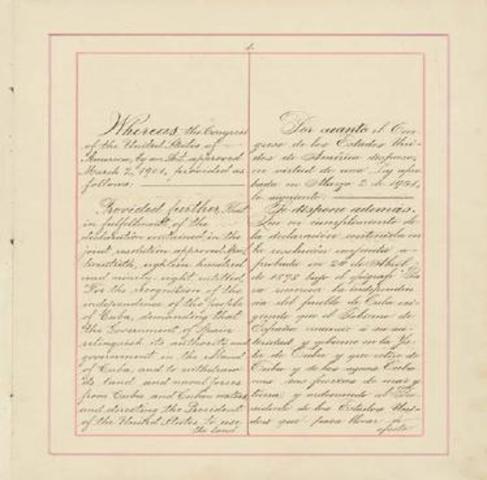 Whereas the Congress
of the United States of
America, by an Act approved
March 2, 1901, provided as
follows:
Provided further, That
in fulfillment of the
declaration contained in the
joint resolution approved
twentieth, eighteen hundred
and ninety-eight, entitled,
"For the recognition of the
independence of the people
of Cuba, demanding that
the Government of Spain
relinquish its authority and
government in the Island
of Cuba, and to withdraw
its land and naval forces
from Cuba and Cuban waters,
and directing the President
of the United States to use
the land
Por cuanto el Con-
greso de los Estados Uni-
dos de América dispuso,
en virtud de una Ley apro-
bada en Marzo 2 de 1901,
lo siguiente:
Se dispone además,
Que en cumplimiento de
la declaración contenida en
la resolución conjunta a-
probada en 20 de Abril
de 1898 bajo el epígrafe "Pa-
ra reconocer la independen-
cia del pueblo de Cuba exi-
giendo que el Gobierno de
España renuncie á su au-
toridad y gobierno en la Is-
la de Cuba y que retire de
Cuba y de las aguas Cuba-
nas sus fuerzas de mar y
tierra y ordenando al Pre-
sidente de los Estados Uni-
dos que para llevar á
efecto